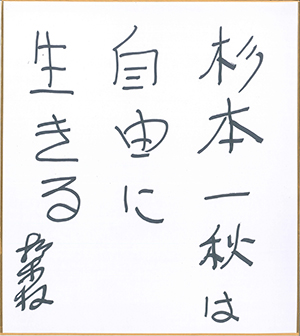 杉本一秋は
自由に
生きる